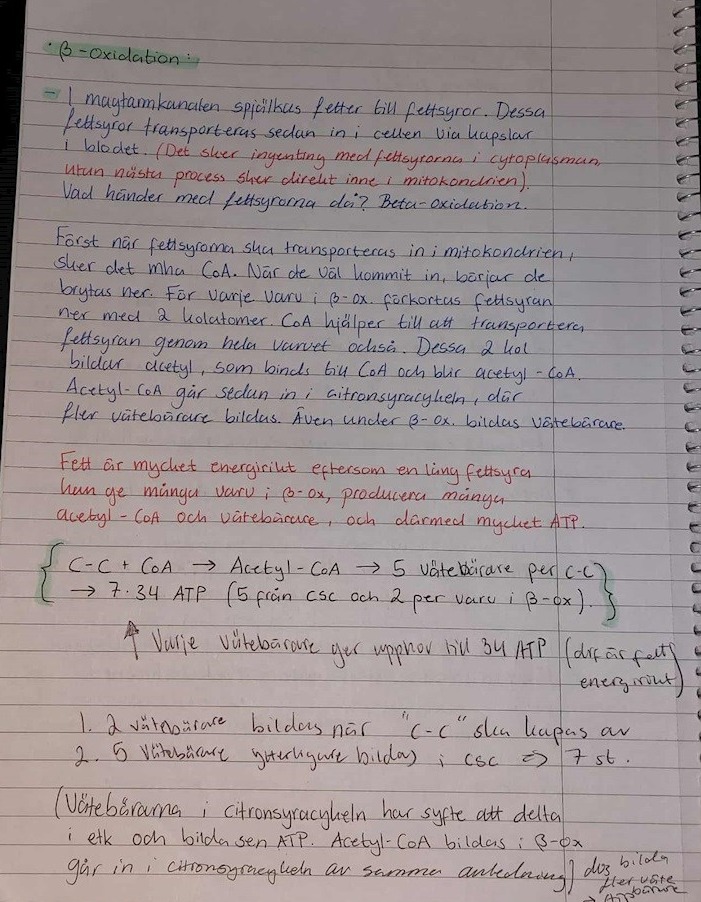 · β-oxidation:
- I magtarmkanalen spjälkas fetter till fettsyror. Dessa
fettsyror transporteras sedan in i cellen via kapslar
i blodet. (Det sker ingenting med fettsyrorna i cytoplasman,
utan nästa process sker direkt inne i mitokondrien).
Vad händer med fettsyrorna då? Beta-oxidation.
Först när fettsyrorna ska transporteras in i mitokondrien,
sker det mha CoA. När de väl kommit in, börjar de
brytas ner. För varje varv i β-ox. förkortas fettsyran
ner med 2 kolatomer. CoA hjälper till att transportera
fettsyran genom hela varvet också. Dessa 2 kol
bildar acetyl, som binds till CoA och blir acetyl-CoA.
Acetyl-CoA går sedan in i citronsyracykeln, där
fler vätebärare bildas. Även under β-ox. bildas vätebärare.
Fett är mycket energirikt eftersom en lång fettsyra
kan ge många varv i β-ox, producera många
acetyl-CoA och vätebärare, och därmed mycket ATP.
{ C-C + CoA → Acetyl-CoA → 5 vätebärare per C-C
→ 7·34 ATP (5 från csc och 2 per varv i β-ox). }
↑ Varje vätebärare ger upphov till 34 ATP (drf är fett
energirikt)
1. 2 vätebärare bildas när "C-C" ska kapas av
2. 5 vätebärare ytterligare bildas i csc ⇒ 7 st.
(Vätebärarna i citronsyracykeln har syfte att delta
i etk och bilda sen ATP. Acetyl-CoA bildas i β-ox
går in i citronsyracykeln av samma anledning)
bilda
fler väte
bärare